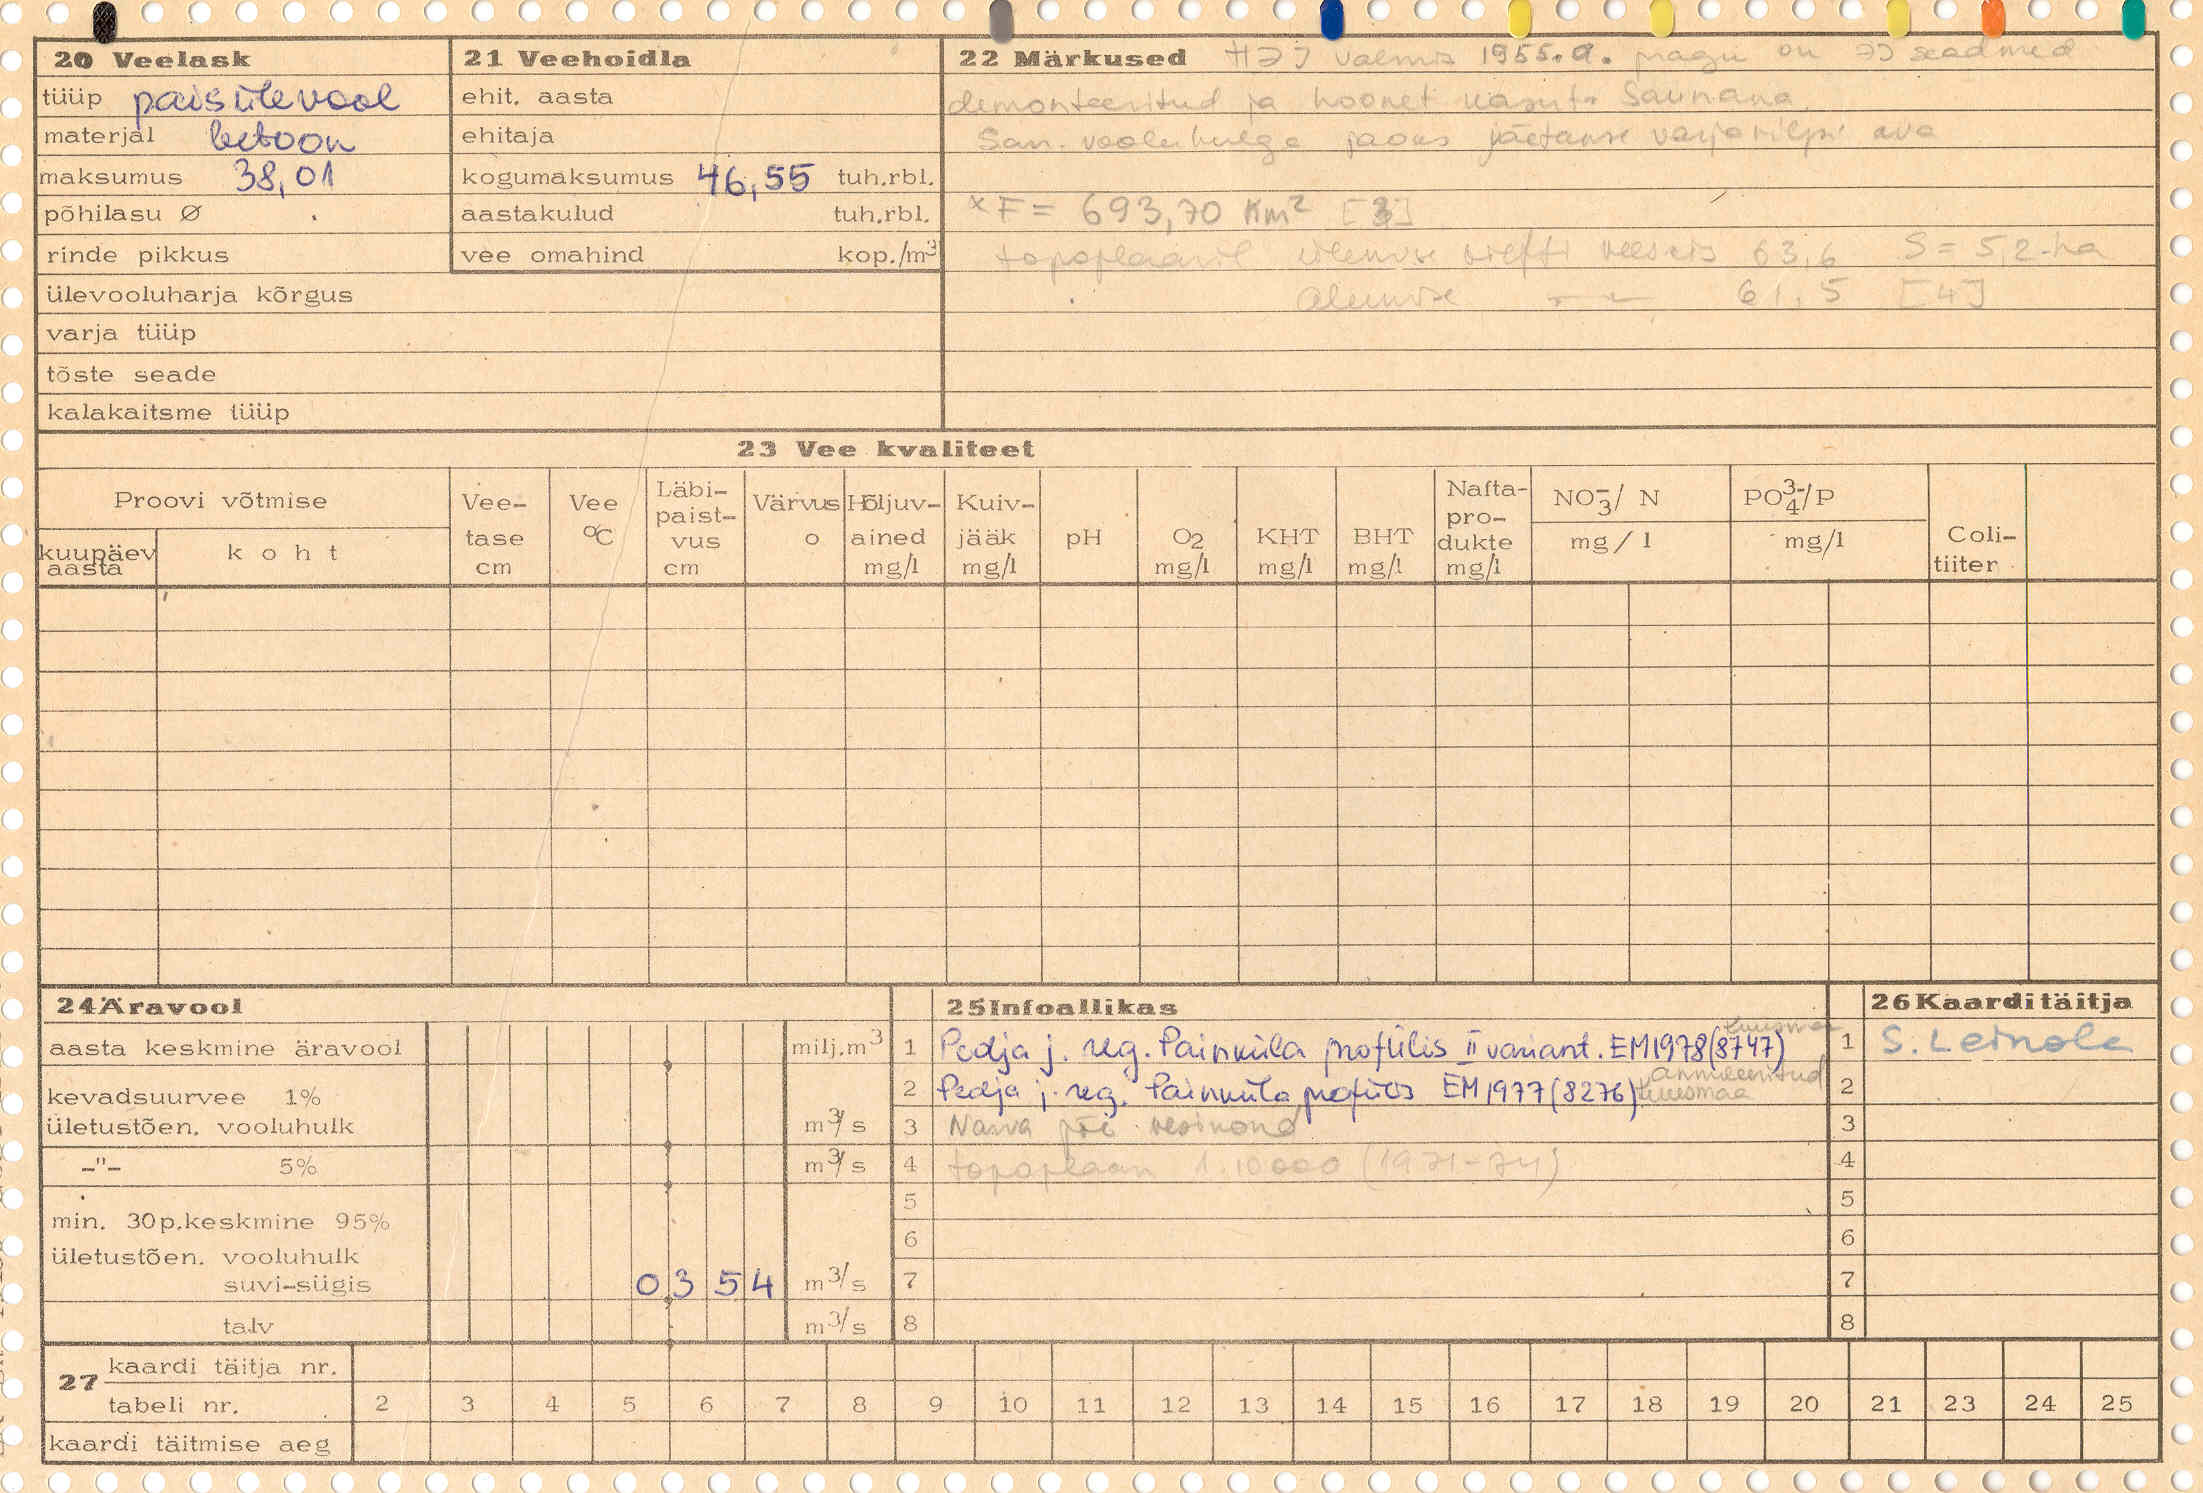 20 Veelask
tüüp paisülevool
materjal betoon
maksumus 38,01
põhilasu Ø
rinde pikkus
ülevooluharja kõrgus
varja tüüp
tõste seade
kalakaitsme tüüp
21 Veehoidla
ehit. aasta
ehitaja
kogumaksumus 46,55 tuh.rbl.
aastakulud tuh.rbl.
vee omahind kop./m³
22 Märkused HEJ valmis 1955.a. praegu on EJ seadmed
demonteeritud ja hoonet kasut. saunana.
San. vooluhulga jaoks jäetakse varja ava
x F = 693,70 Km² [3]
topoplaanil ülemise veeseis 63,6 S = 5,2 ha
alumise 61,5 [4]
23 Vee kvaliteet
Proovi võtmise
kuupäev aasta
koht
Vee-tase cm
Vee °C
Läbi-paist-vus cm
Värvus o
Hõljuv-ained mg/l
Kuiv-jääk mg/l
pH
O2 mg/l
KHT mg/l
BHT mg/l
Nafta-pro-dukte mg/l
NO₃⁻/ N mg/l
PO₄³⁻/P mg/l
Coli-tiiter
24 Äravool
aasta keskmine äravool milj.m³
kevadsuurvee 1%
ületustõen. vooluhulk m³/s
-"- 5% m³/s
min. 30p.keskmine 95%
ületustõen. vooluhulk
suvi-sügis 0 3 5 4 m³/s
talv m³/s
25 Infoallikas
1 Pedja j. reg. Painküla profiilis II variant. EM1978(8747) Kuusmaa
2 Pedja j. reg. Painküla profiilis EM1977(8276) annuleeritud Kuusmaa
3 Narva jõe vesikond
4 topoplaan 1:10000 (1971-74)
5
6
7
8
26 Kaardi täitja
1 S. Leinola
2
3
4
5
6
7
8
27 kaardi täitja nr.
tabeli nr. 2 3 4 5 6 7 8 9 10 11 12 13 14 15 16 17 18 19 20 21 23 24 25
kaardi täitmise aeg